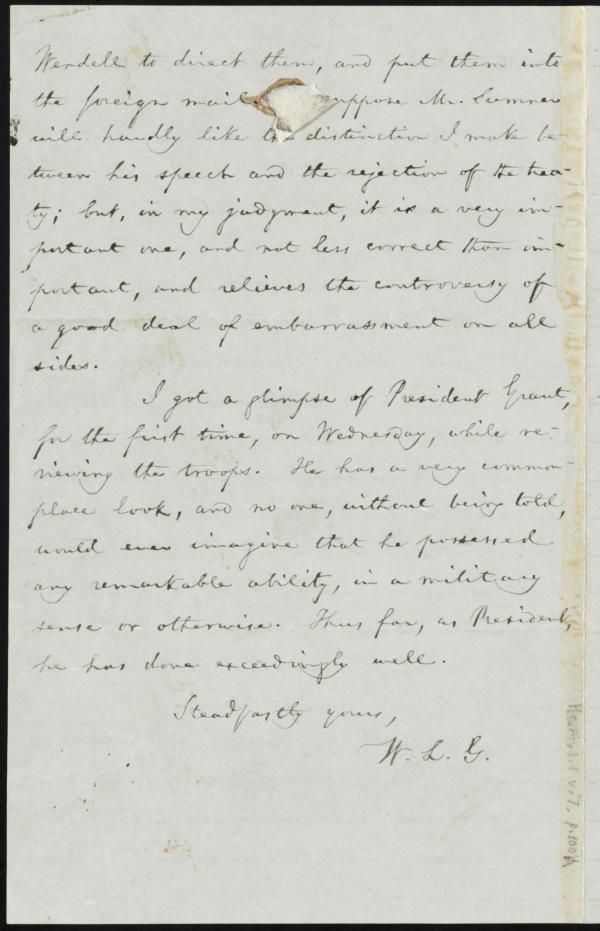 Wendell to direct them, and put them into
the foreign mail. suppose Mr. Sumner
will hardly like the distinction I make be-
tween his speech and the rejection of the trea-
ty; but, in my judgment, it is a very im-
portant one, and not less correct than im-
portant, and relieves the controversy of
a good deal of embarrassment on all
sides.
I got a glimpse of President Grant,
for the first time, on Wednesday, while re-
viewing the troops. He has a very common-
place look, and no one, without being told,
would ever imagine that he possessed
any remarkable ability, in a military
sense or otherwise. Thus far, as President,
he has done exceedingly well.
Steadfastly yours,
W. L. G.